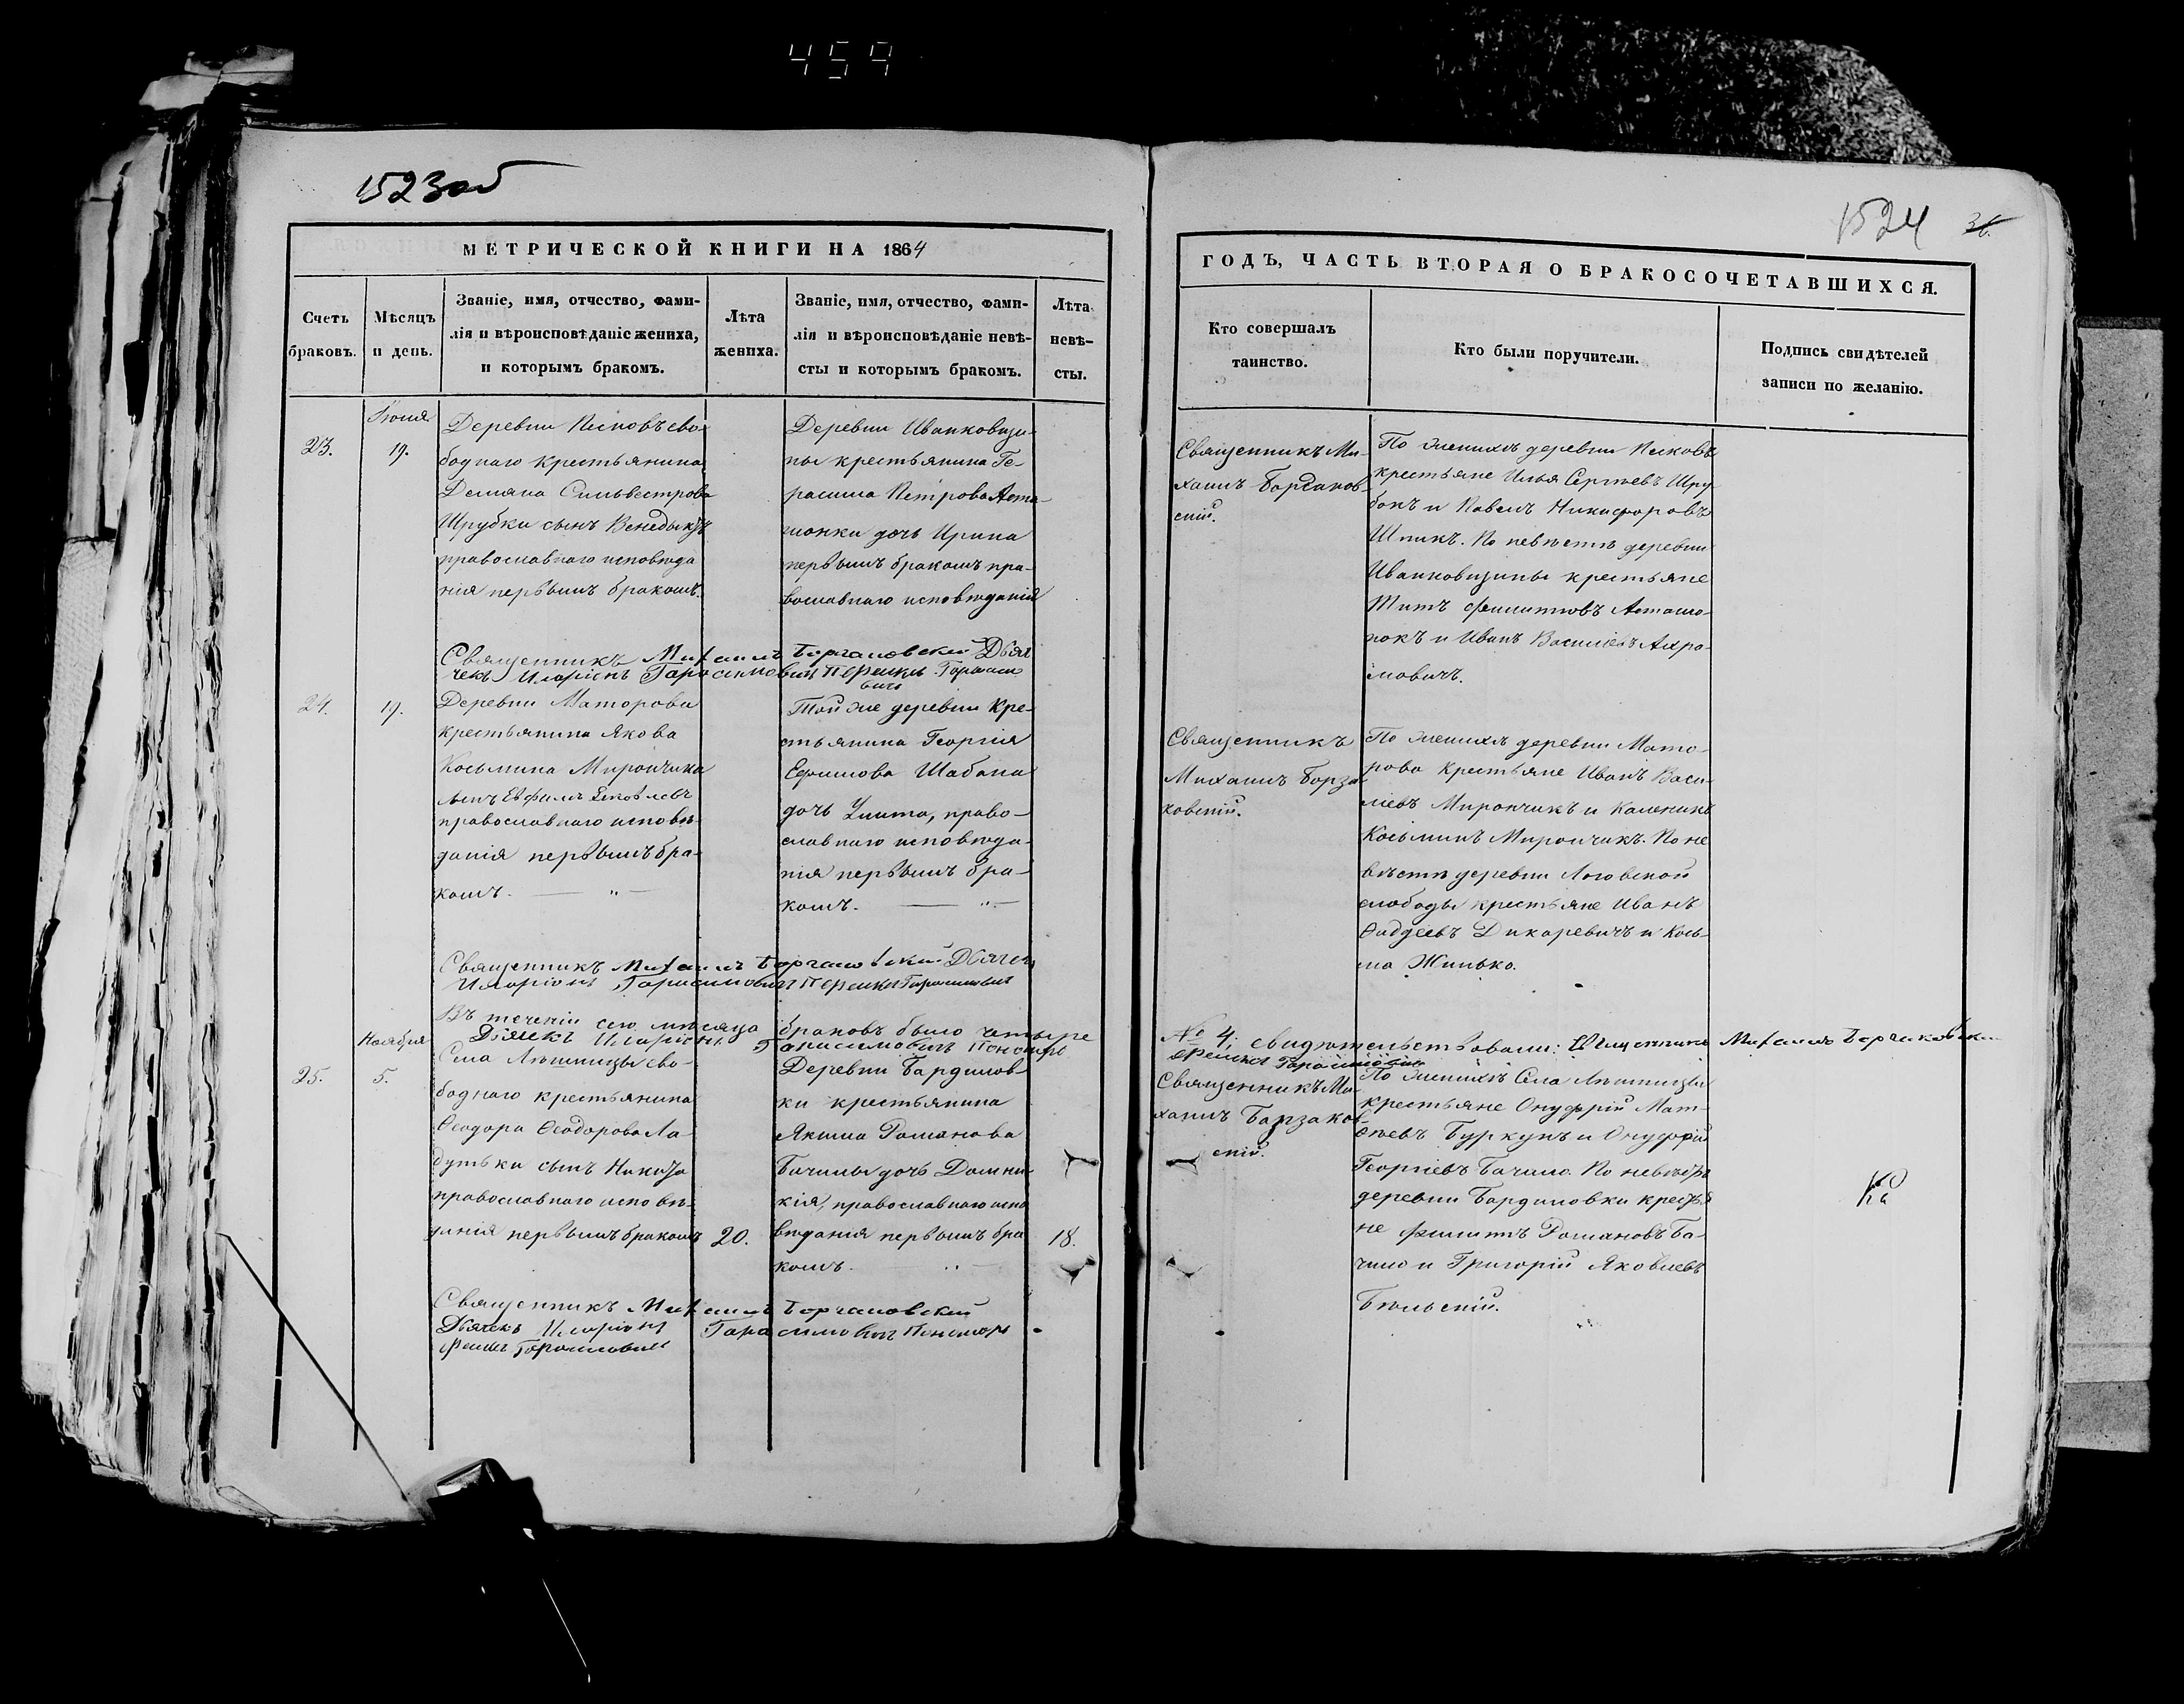 459
1523об
МЕТРИЧЕСКОЙ КНИГИ НА 1864
Счетъ браковъ.
Мѣсяцъ и день.
Званіе, имя, отчество, фами-
лія и вѣроисповѣданіе жениха,
и которымъ бракомъ.
Лѣта жениха.
Званіе, имя, отчество, фами-
лія и вѣроисповѣданіе невѣ-
сты и которымъ бракомъ.
Лѣта невѣ-
сты.
23.
19.
Деревни Песковъ сво-
боднаго крестьянина
Демяна Сильвестрова
Шрубки сынъ Венедыктъ
православнаго исповѣда
нія первымъ бракомъ.
Деревни Иванковщи-
ны крестьянина Ге-
расима Петрова Аста-
шонки дочь Ирина
первымъ бракомъ пра-
вославнаго исповѣданія
Священникъ Михаилъ
24.
19.
Деревни Маторова
крестьянина Якова
Косьмина Мирончика
сынъ Евфимъ Яковлевъ
православнаго исповѣ-
данія первымъ бра-
комъ.
Той же деревни кре-
стьянина Георгія
Ефимова Шабана
дочь Улита, право-
славнаго исповѣда-
нія первымъ бра-
комъ.
Священникъ Михаилъ
Иларіонъ Гарасимовичъ
Въ теченіи сего мѣсяца браковъ было четыре
Дьячекъ Иларіонъ Гарасимовичъ
Ноября
25.
5.
Села Лѣшницы сво-
боднаго крестьянина
Ѳеодора Ѳеодорова Ла-
дутьки сынъ Никита
православнаго исповѣ-
данія первымъ бракомъ
20.
Деревни Бардилов-
ки крестьянина
Якима Романова
Бачилы дочь Домни-
кія, православнаго испо
вѣданія первымъ бра
комъ.
18.
Священникъ Михаилъ
Дьячекъ Иларіонъ Гарасимовичъ
1524
36.
ГОДЪ, ЧАСТЬ ВТОРАЯ О БРАКОСОЧЕТАВШИХСЯ.
Кто совершалъ
таинство.
Кто были поручители.
Подпись свидѣтелей
записи по желанію.
Священникъ Ми-
хаилъ Борзаков-
скій.
По женихѣ деревни Песковъ
крестьяне Илья Сергѣевъ Шру
бокъ и Павелъ Никифоровъ
Шпикъ. По невѣстѣ деревни
Иванковщины крестьяне
Титъ Филиповъ Асташо-
нокъ и Иванъ Василіевъ Ахра-
мовичъ.
Священникъ
Михаилъ Борза
ковскій.
По женихѣ деревни Мато-
рова крестьяне Иванъ Васи-
ліевъ Мирончикъ и Каленикъ
Косьминъ Мирончикъ. По не
вѣстѣ деревни Логовской
слободы крестьяне Иванъ
Ѳаддеевъ Дикаревичъ и Кось-
ма Жилько.
№ 4, свидѣтельствовали: Священникъ Михаилъ
Священникъ Ми-
хаилъ Борзаков-
скій.
По женихѣ Села Лѣшницы
крестьяне Онуфрій Мат-
ѳѣевъ Буркунъ и Онуфрій
Георгіевъ Бачило. По невѣстѣ
деревни Бардиловки крестья
не Филипъ Романовъ Ба-
чило и Григорій Яковлевъ
Бѣльскій.